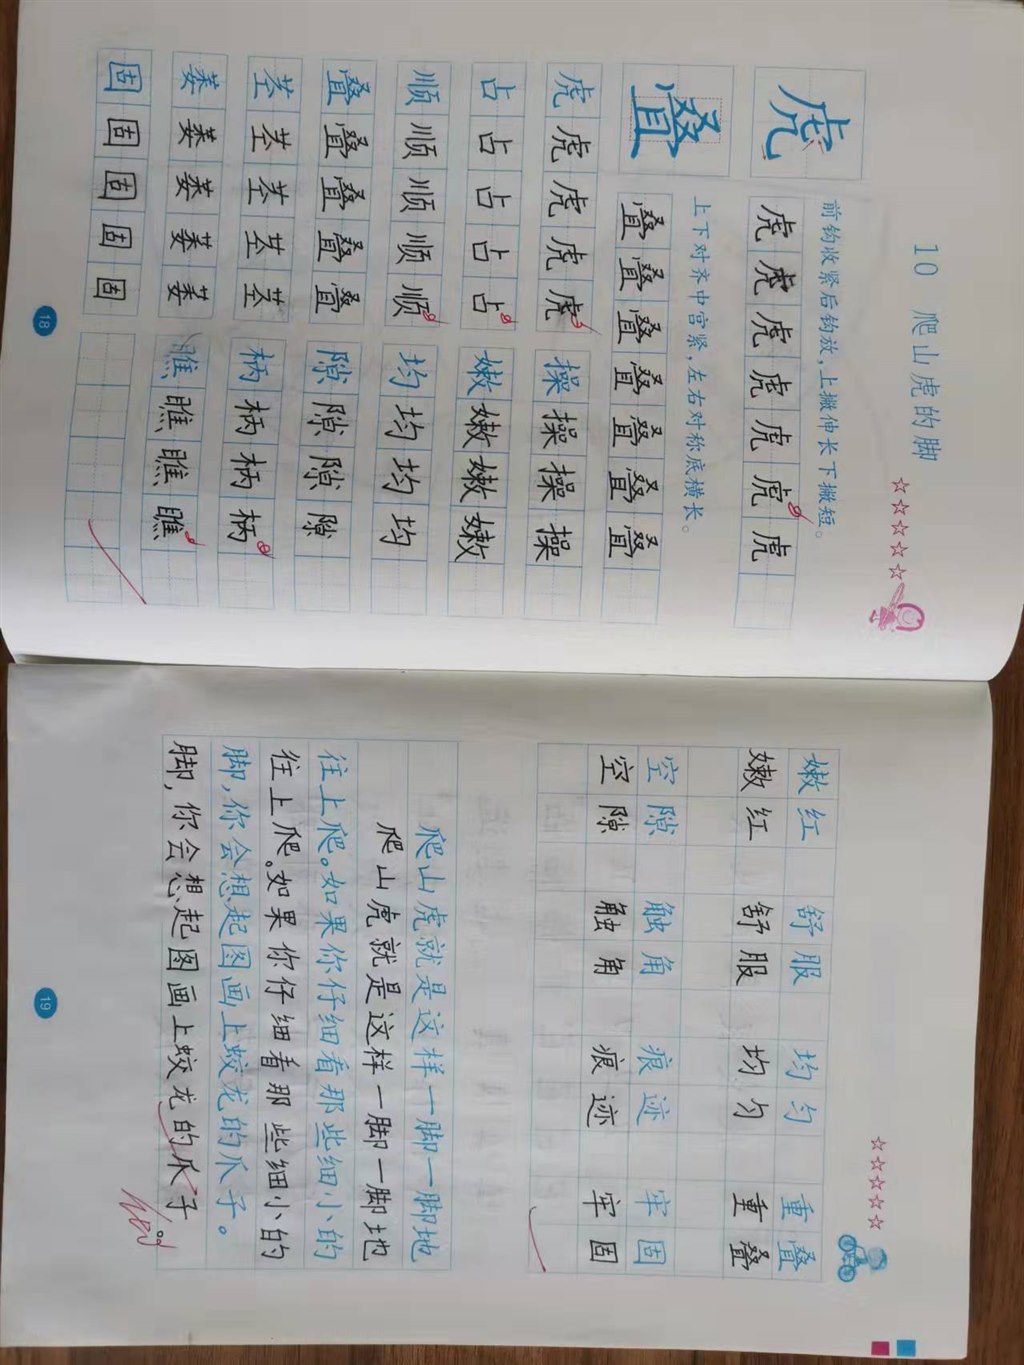 10 爬山虎的脚
前钩收紧后钩放，上撇伸长下撇短。
虎 虎 虎 虎 虎 虎 虎 虎
上下对齐中宫紧，左右对称底横长。
叠 叠 叠 叠 叠 叠 叠 叠
虎 虎 虎 虎 虎 操 操 操 操
占 占 占 占 占 嫩 嫩 嫩 嫩
顺 顺 顺 顺 顺 均 均 均 均
叠 叠 叠 叠 叠 隙 隙 隙 隙
茎 茎 茎 茎 茎 柄 柄 柄 柄
萎 萎 萎 萎 萎 瞧 瞧 瞧 瞧
固 固 固 固 固
18
嫩红 舒服 均匀 重叠
嫩红 舒服 均匀 重叠
空隙 触角 痕迹 牢固
空隙 触角 痕迹 牢固
爬山虎就是这样一脚一脚地
爬山虎就是这样一脚一脚地
往上爬。如果你仔细看那些细小的
往上爬。如果你仔细看那些细小的
脚，你会想起图画上蛟龙的爪子。
脚，你会想起图画上蛟龙的爪子
19